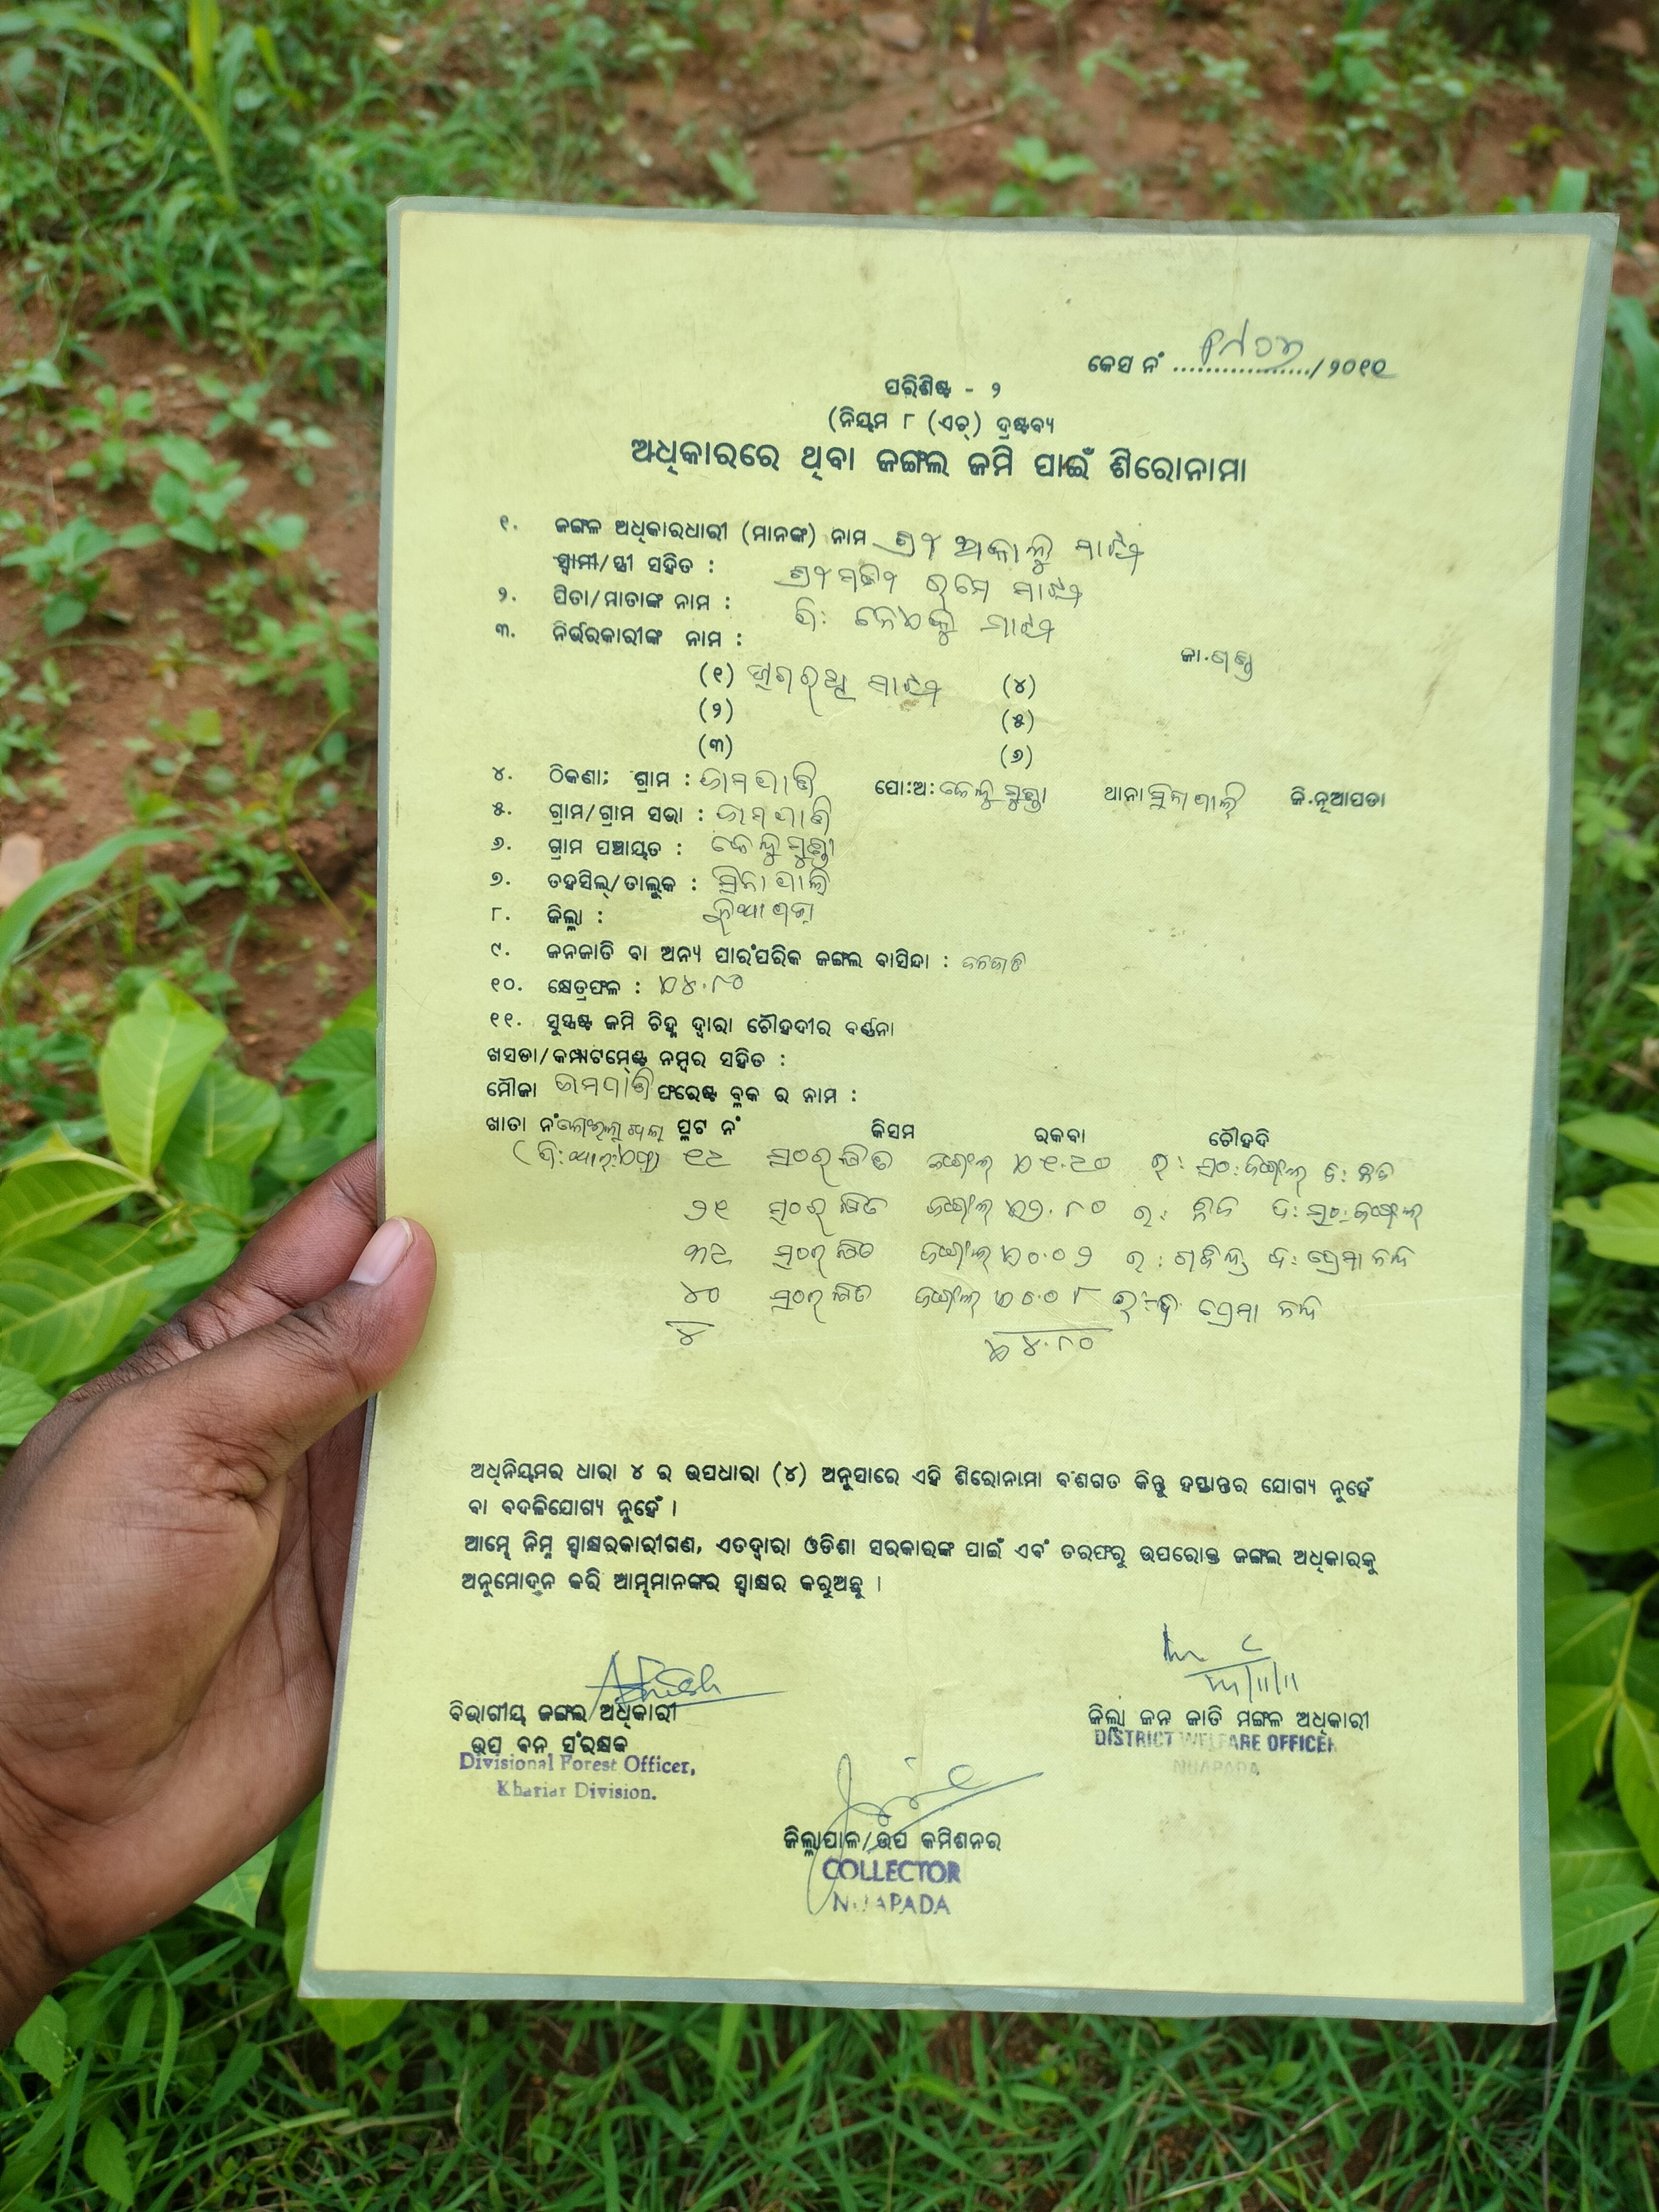 କେସ ନଂ ................../୨୦୧୧
ପରିଶିଷ୍ଟ - ୨
(ନିୟମ ୮ (ଏଚ୍) ଦ୍ରଷ୍ଟବ୍ୟ
ଅଧିକାରରେ ଥିବା ଜଙ୍ଗଲ ଜମି ପାଇଁ ଶିରୋନାମା
୧. ଜଙ୍ଗଳ ଅଧିକାରଧାରୀ (ମାନଙ୍କ) ନାମ ଶ୍ରୀ ଅକାଳୁ ମାଝି
ସ୍ୱାମୀ/ସ୍ତ୍ରୀ ସହିତ : ଶ୍ରୀମତି ମାଝି
୨. ପିତା/ମାତାଙ୍କ ନାମ : ପି: ମାଝି
୩. ନିର୍ଭରକାରୀଙ୍କ ନାମ : ଜା.ଗଣ୍ଡ
(୧) ମାଝି (୪)
(୨) (୫)
(୩) (୬)
୪. ଠିକଣା; ଗ୍ରାମ : ଭାମପାନି ପୋ:ଅ: କେନ୍ଦୁମୁଣ୍ଡା ଥାନା ସିନାପାଲି ଜି.ନୂଆପଡା
୫. ଗ୍ରାମ/ଗ୍ରାମ ସଭା : ଭାମପାନି
୬. ଗ୍ରାମ ପଞ୍ଚାୟତ : କେନ୍ଦୁମୁଣ୍ଡା
୭. ତହସିଲ୍/ତାଲୁକ : ସିନାପାଲି
୮. ଜିଲ୍ଲା : ନୂଆପଡା
୯. ଜନଜାତି ବା ଅନ୍ୟ ପାରଂପରିକ ଜଙ୍ଗଲ ବାସିନ୍ଦା : ଜନଜାତି
୧୦. କ୍ଷେତ୍ରଫଳ : ଏ୪.୮୦
୧୧. ସୁସ୍ପଷ୍ଟ ଜମି ଚିହ୍ନ ଦ୍ୱାରା ଚୌହଦୀର ବର୍ଣ୍ଣନା
ଖସଡା/କମ୍ପାଟମେଣ୍ଟ ନମ୍ବର ସହିତ :
ମୌଜା ଭାମପାନି ଫରେଷ୍ଟ ବ୍ଲକ ର ନାମ :
ଖାତା ନଂ ପ୍ଲଟ ନଂ କିସମ ରକବା ଚୌହଦି
୧୯ ସଂରକ୍ଷିତ ଜଙ୍ଗଲ ଏ୧.୯୦ ଉ: ସଂ:ଜଙ୍ଗଲ
୨୧ ସଂରକ୍ଷିତ ଜଙ୍ଗଲ ଏ୨.୮୦ ଉ: ଦ: ସଂ:ଜଙ୍ଗଲ
୩୯ ସଂରକ୍ଷିତ ଜଙ୍ଗଲ ଏ୦.୦୨ ଉ: ଦ: ପ୍ରେମାନନ୍ଦ
୪୦ ସଂରକ୍ଷିତ ଜଙ୍ଗଲ ଏ୦.୦୮ ପ୍ରେମାନନ୍ଦ
୪ ଏ୪.୮୦
ଅଧିନିୟମର ଧାରା ୪ ର ଉପଧାରା (୪) ଅନୁସାରେ ଏହି ଶିରୋନାମା ବଂଶଗତ କିନ୍ତୁ ହସ୍ତାନ୍ତର ଯୋଗ୍ୟ ନୁହେଁ
ବା ବଦଳିଯୋଗ୍ୟ ନୁହେଁ ।
ଆମ୍ଭେ ନିମ୍ନ ସ୍ୱାକ୍ଷରକାରୀଗଣ, ଏତଦ୍ୱାରା ଓଡିଶା ସରକାରଙ୍କ ପାଇଁ ଏବଂ ତରଫରୁ ଉପରୋକ୍ତ ଜଙ୍ଗଲ ଅଧିକାରକୁ
ଅନୁମୋଦନ କରି ଆମ୍ଭମାନଙ୍କର ସ୍ୱାକ୍ଷର କରୁଅଛୁ ।
ବିଭାଗୀୟ ଜଙ୍ଗଲ ଅଧିକାରୀ
ଉପ ବନ ସଂରକ୍ଷକ
Divisional Forest Officer,
Khariar Division.
ଜିଲ୍ଲା ଜନ ଜାତି ମଙ୍ଗଳ ଅଧିକାରୀ
DISTRICT WELFARE OFFICER
NUAPADA
ଜିଲ୍ଲାପାଳ/ଉପ କମିଶନର
COLLECTOR
NUAPADA